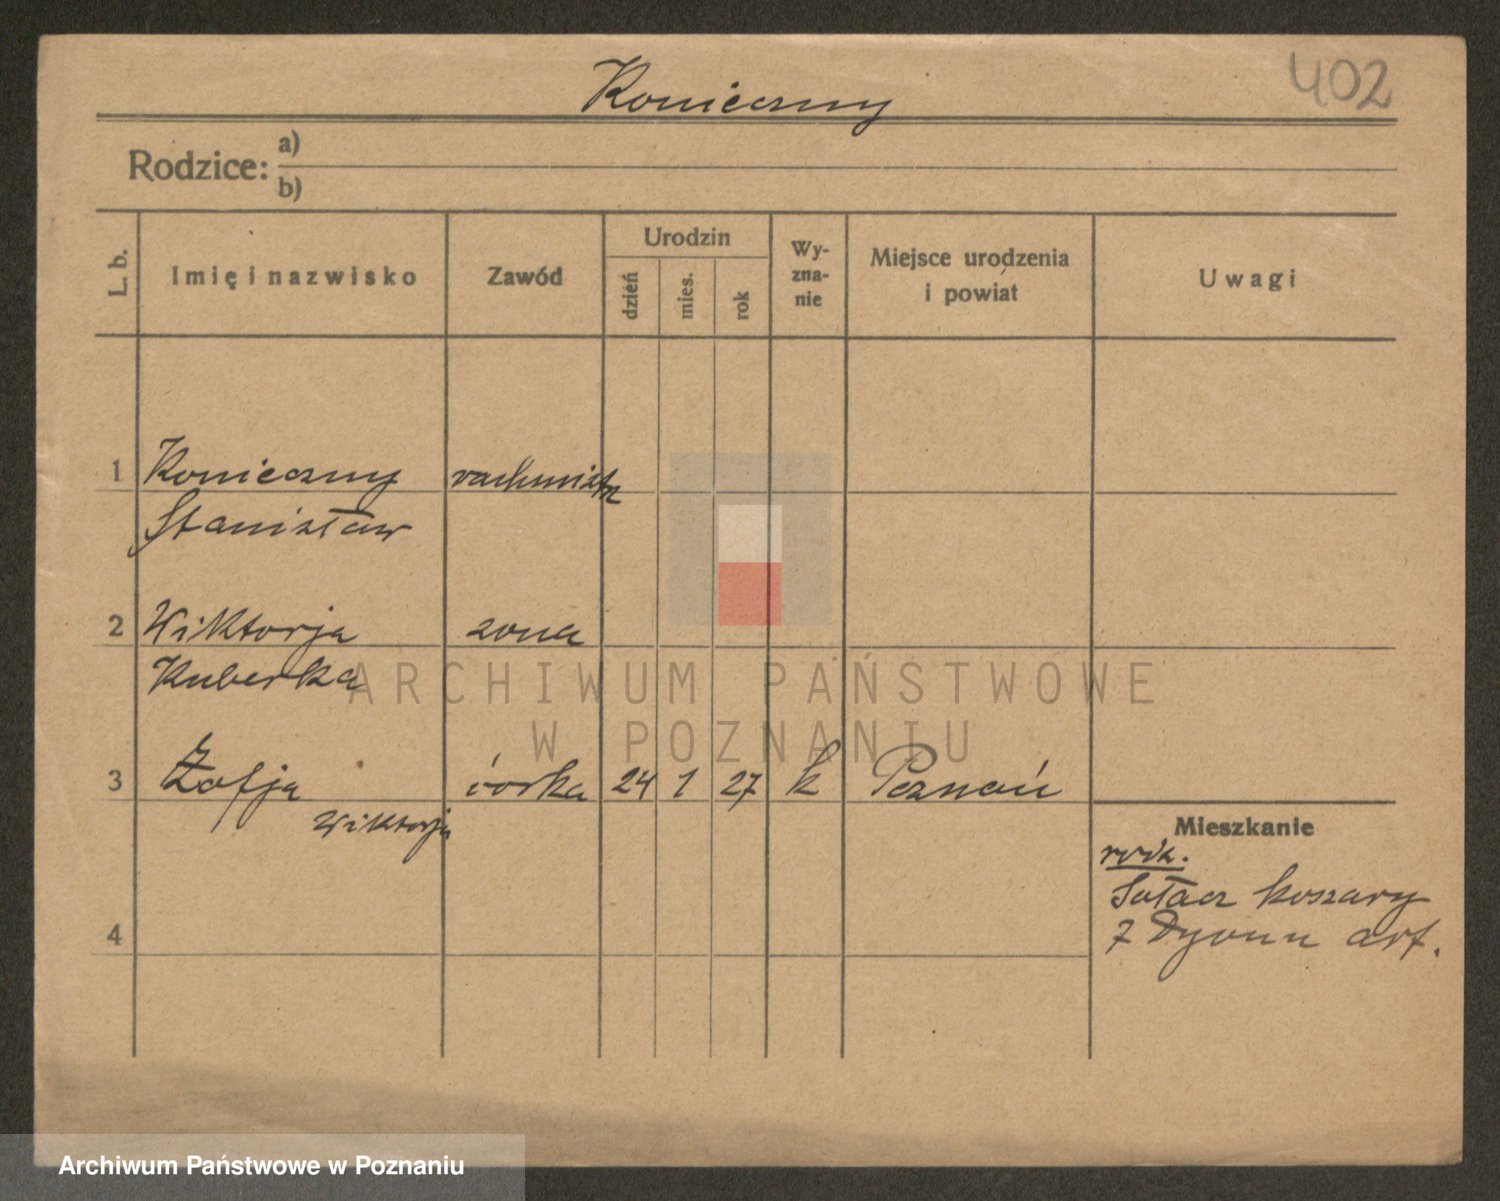 402
Konieczny
Rodzice: a)
b)
L. b.
Imię i nazwisko
Zawód
Urodzin
dzień
mies.
rok
Wy-
zna-
nie
Miejsce urodzenia
i powiat
Uwagi
1 Konieczny wachmistrz
Stanisław
2 Wiktorja zona
Kuberka
3 Zofja córka 24 1 27 k Poznań
Wiktorja
4
Mieszkanie
rodz.
Sołacz koszary
7 Dyonu art.
ARCHIWUM PAŃSTWOWE
W POZNANIU
Archiwum Państwowe w Poznaniu